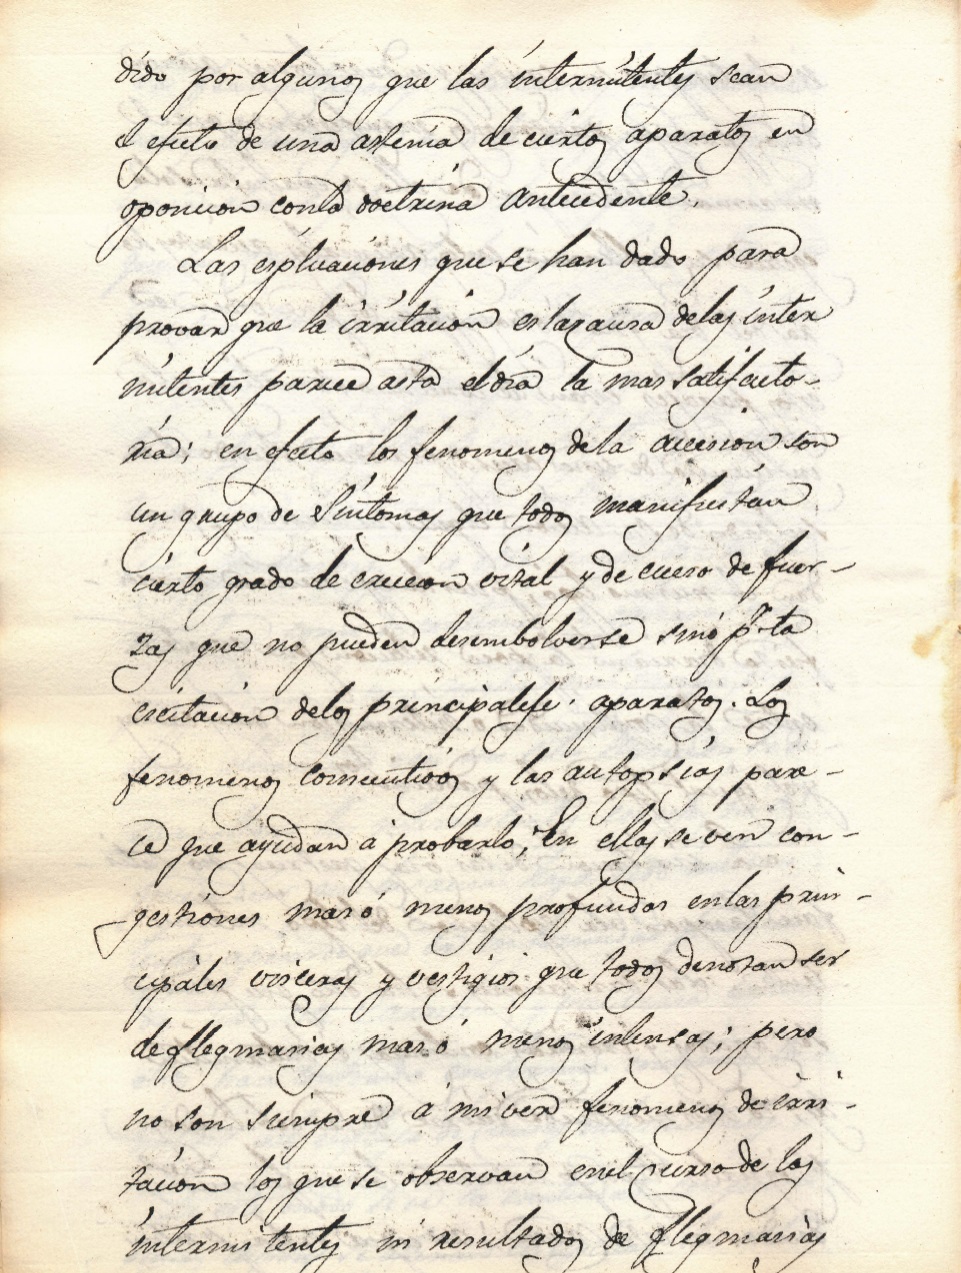 dido por algunos que las intermitentes sean
el efecto de una astenia de ciertos aparatos en
oposicion conla doctrina antecedente.
Las esplicaciones que se han dado para
provar que la irritacion es lacausa delas inter
mitentes parece asta eldia la mas satisfacto-
ria; en efecto los fenomenos dela accesion son
un grupo de Sintomas que todos manifiestan
cierto grado de exceson vital y de eceso de fuer-
zas que no pueden desembolverse sinó pr. la
escitacion delos principalese. aparatos. Los
fenomenos consecutivos y las autopsias pare-
ce que ayudan á probarlo; En ellas se ven con-
gestiones mas ó menos profundas enlas prin-
cipales visceras y vestigios que todos denotan ser
deflegmasias mas ó menos intensas; pero
no son siempre á mi ver fenomenos de irri-
tacion los que se observan enel curso de las
intermitentes ni resultados de flegmasias